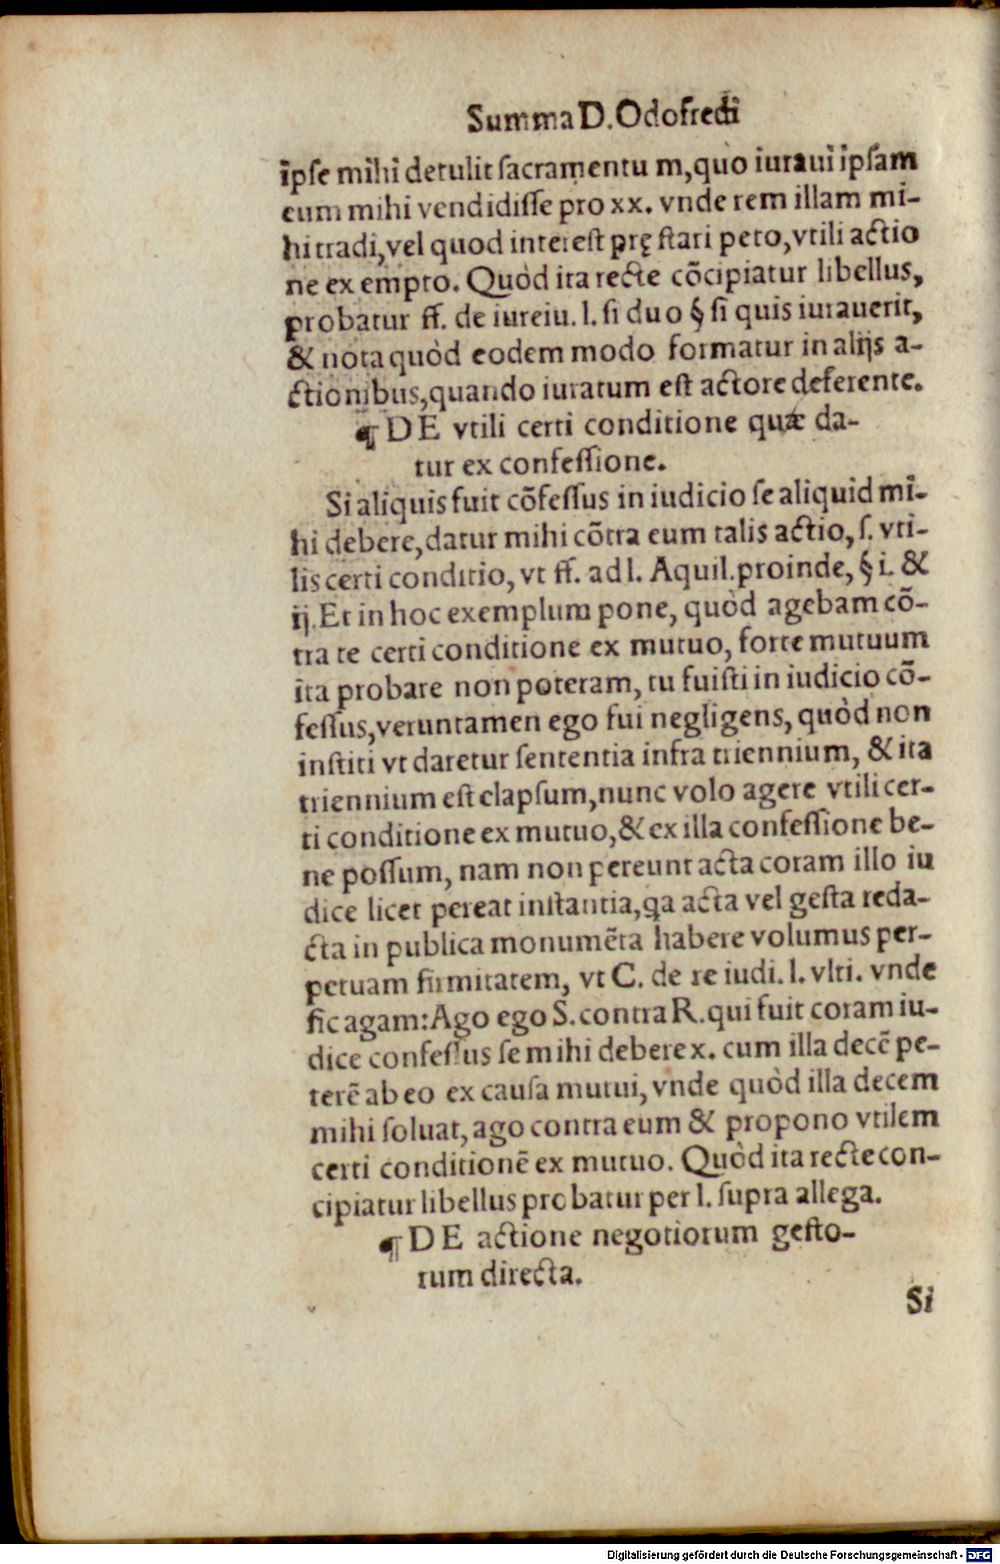 Summa D. Odofredi
ipse mihi detulit sacramentu m, quo iuraui ipsam
eum mihi vendidisse pro xx. vnde rem illam mi-
hi tradi, vel quod interest prę stari peto, vtili actio
ne ex empto. Quòd ita recte cõcipiatur libellus,
probatur ff. de iureiu. l. si duo § si quis iurauerit,
& nota quòd eodem modo formatur in alijs a-
ctionibus, quando iuratum est actore deferente.
¶ DE vtili certi conditione quæ da-
tur ex confessione.
Si aliquis fuit cõfessus in iudicio se aliquid mi-
hi debere, datur mihi cõtra eum talis actio, s. vti-
lis certi conditio, vt ff. ad l. Aquil. proinde, § i. &
ij. Et in hoc exemplum pone, quòd agebam cõ-
tra te certi conditione ex mutuo, forte mutuum
ita probare non poteram, tu fuisti in iudicio cõ-
fessus, veruntamen ego fui negligens, quòd non
institi vt daretur sententia infra triennium, & ita
triennium est elapsum, nunc volo agere vtili cer-
ti conditione ex mutuo, & ex illa confessione be-
ne possum, nam non pereunt acta coram illo iu
dice licet pereat instantia, qa acta vel gesta reda-
cta in publica monumẽta habere volumus per-
petuam firmitatem, vt C. de re iudi. l. vlti. vnde
sic agam: Ago ego S. contra R. qui fuit coram iu-
dice confessus se mihi debere x. cum illa decẽ pe-
terẽ ab eo ex causa mutui, vnde quòd illa decem
mihi soluat, ago contra eum & propono vtilem
certi conditionẽ ex mutuo. Quòd ita recte con-
cipiatur libellus probatur per l. supra allega.
¶ DE actione negotiorum gesto-
rum directa.
Si
Digitalisierung gefördert durch die Deutsche Forschungsgemeinschaft - DFG